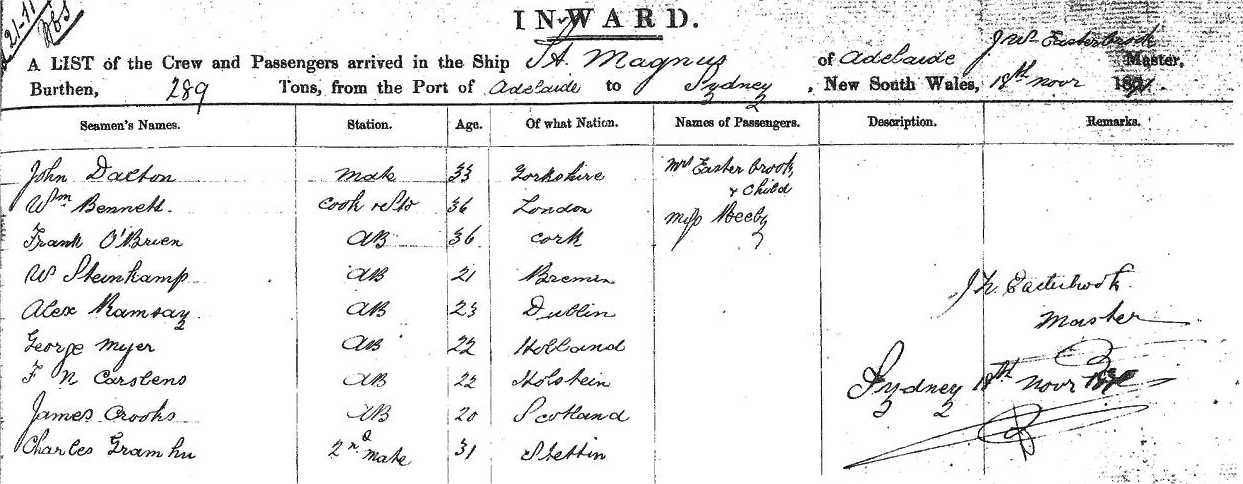 21-11
INWARD.
J Wm Easterbrook
A LIST of the Crew and Passengers arrived in the Ship St. Magnus of Adelaide Master,
Burthen, 289 Tons, from the Port of Adelaide to Sydney, New South Wales, 18th novr 189
Seamen's Names. Station. Age. Of what Nation. Names of Passengers. Description. Remarks.
John Dalton mate 33 Yorkshire Mrs Easterbrook,
& Child
Wm Bennett. Cook & Std 36 London miss Beeby
Frank O'Brien AB 36 Cork
W Steinkamp AB 21 Bremin
Alex Ramsay AB 23 Dublin
George Myer AB 22 Holland
F N Carstens AB 22 Holstein
James Crooks AB 20 Scotland
Charles Gramhu 2nd mate 31 Stettin
Easterbrook
Master
Sydney 18th novr